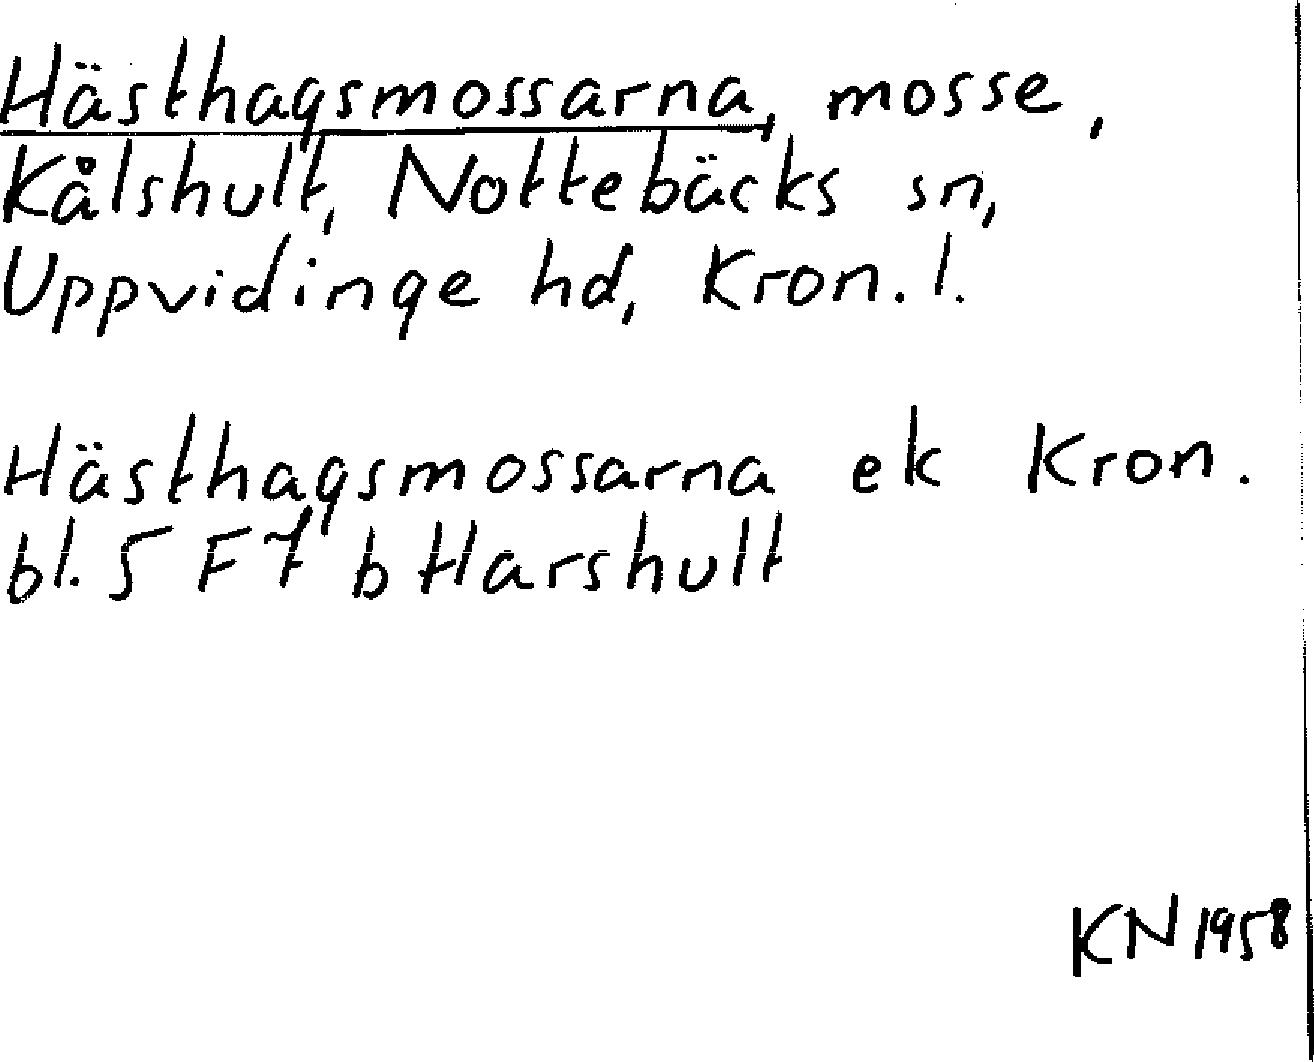 Hästhagsmossarna, mosse,
Kålshult, Nottebäcks sn,
Uppvidinge hd, Kron. l.
Hästhagsmossarna ek Kron.
bl. 5 F 7 b Harshult
KN 1958